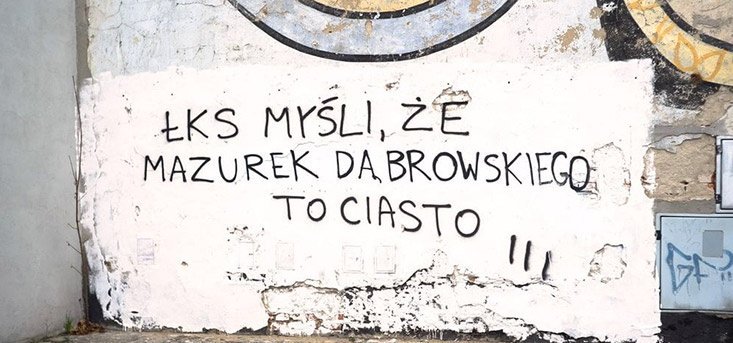 ŁKS MYŚLI, ŻE
MAZUREK DĄBROWSKIEGO
TO CIASTO !!!